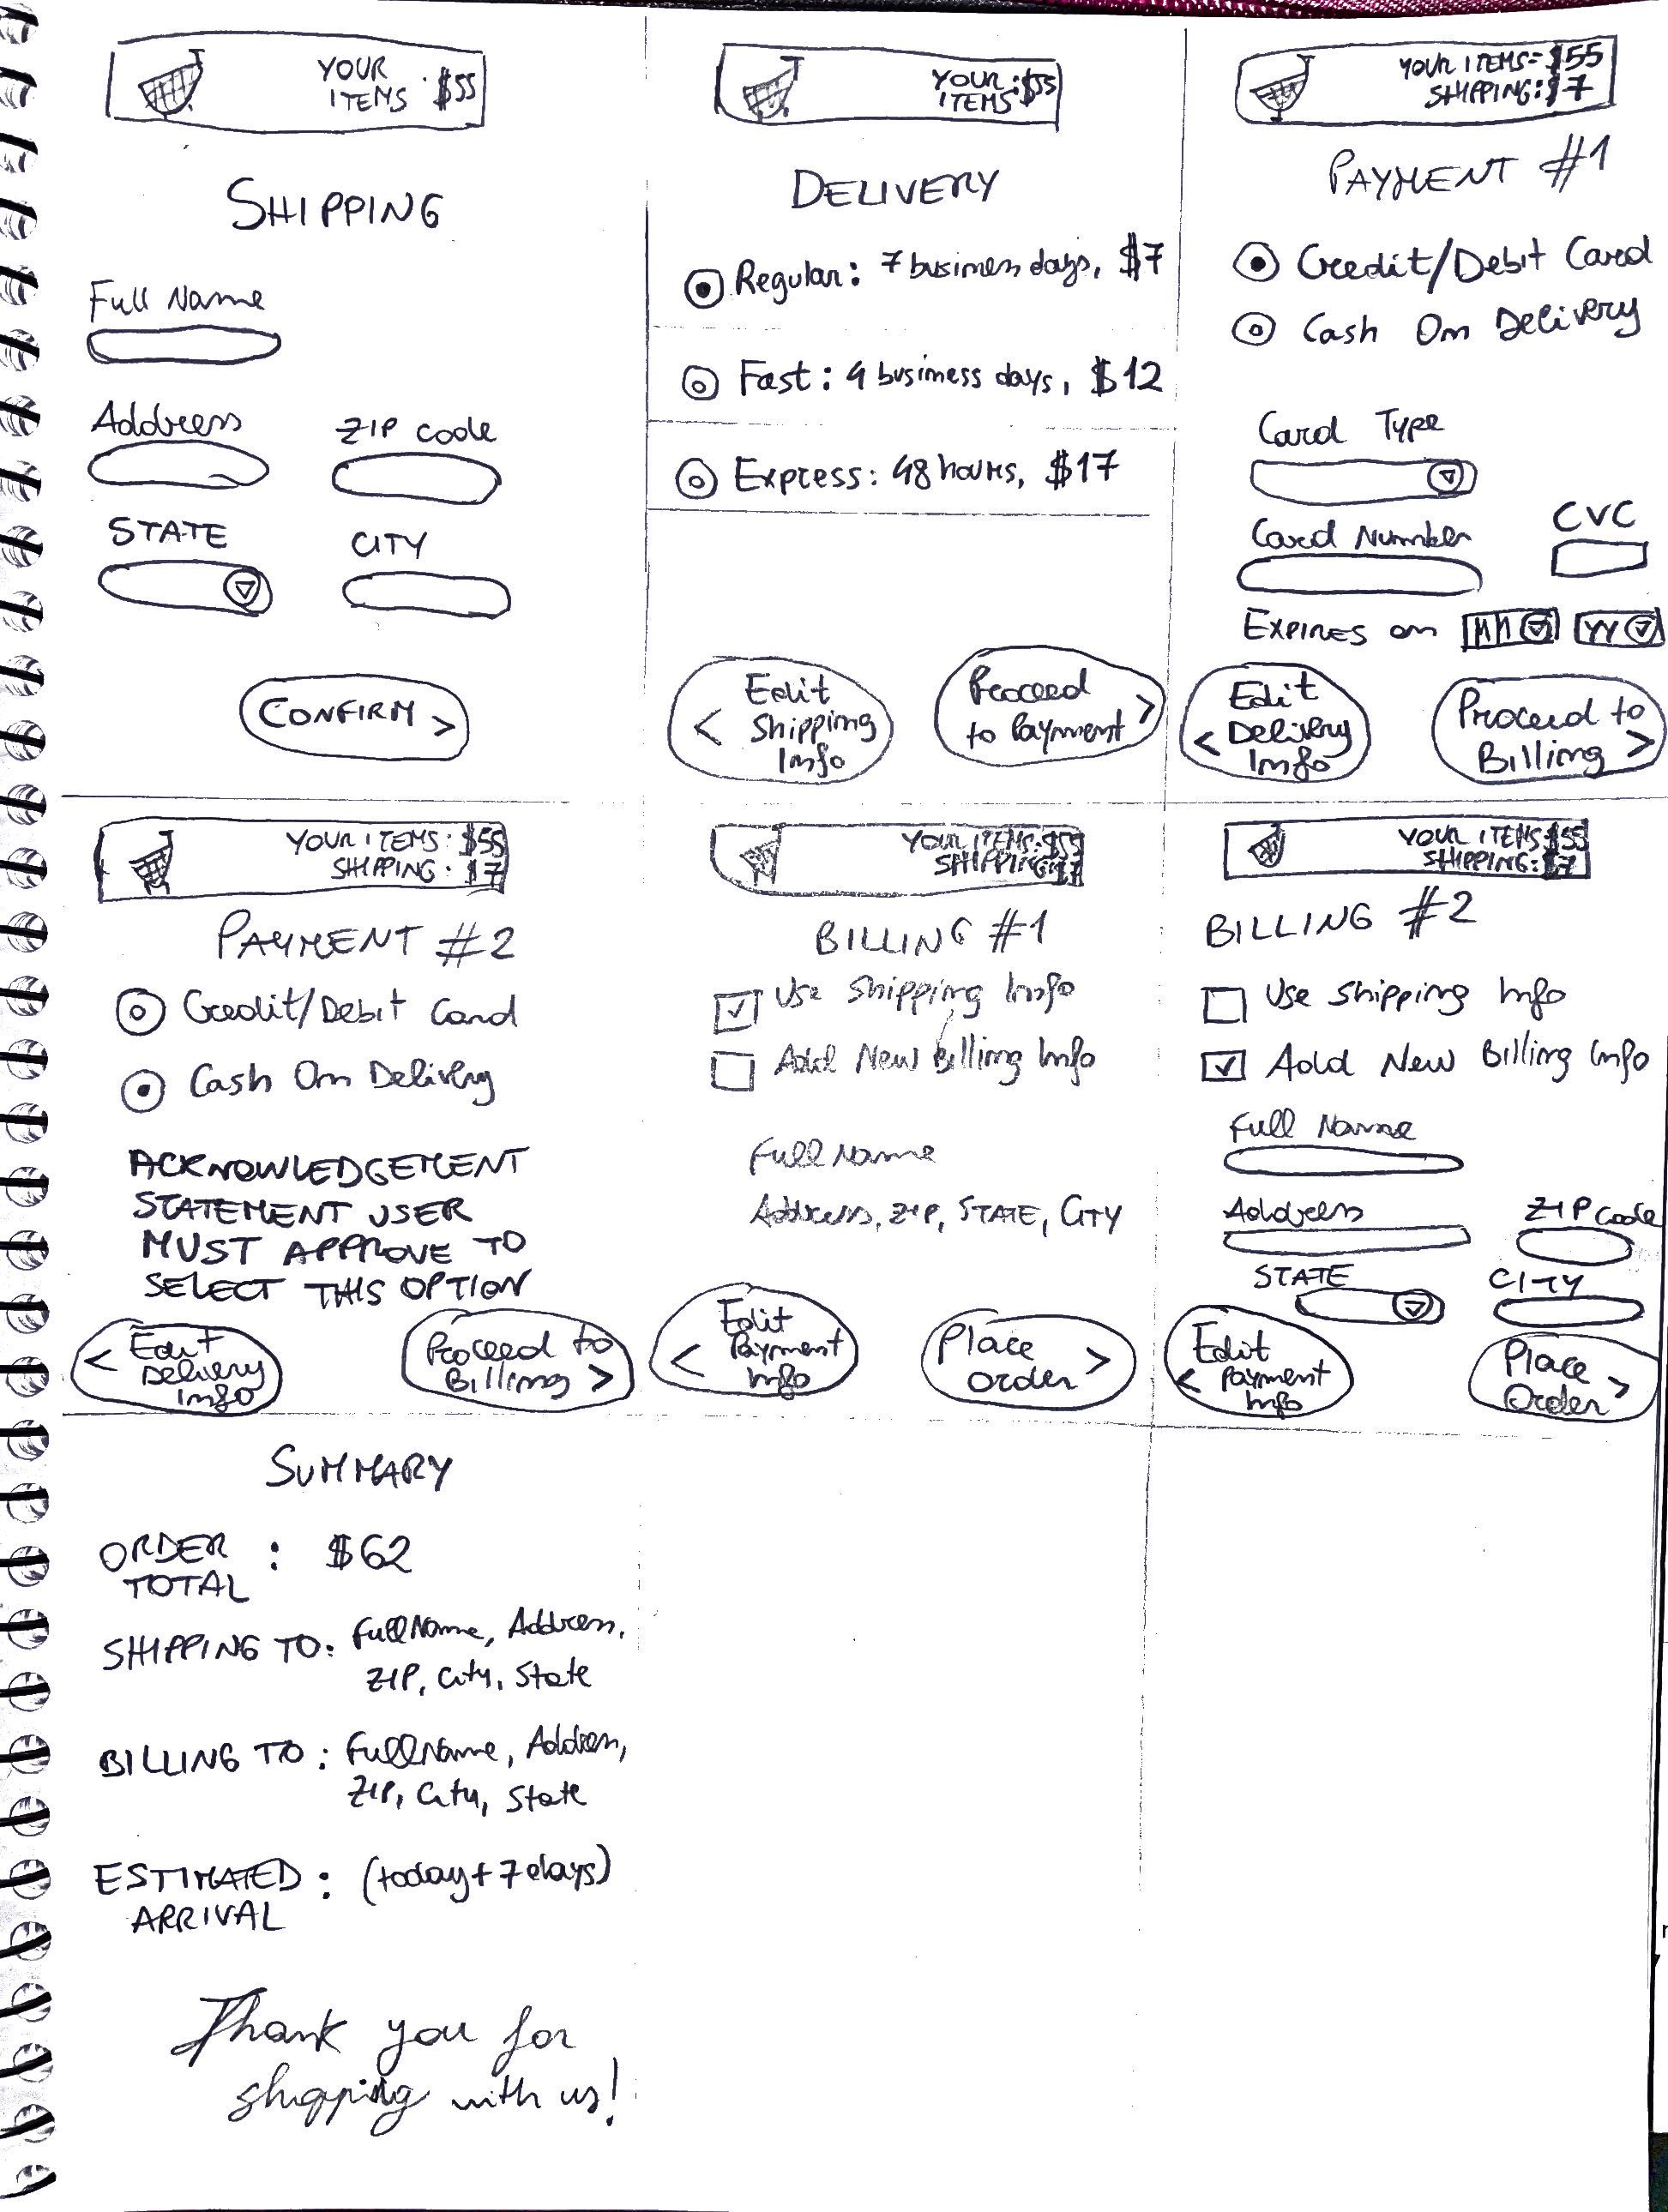 YOUR
ITEMS : $55
SHIPPING
Full Name
Address
ZIP code
STATE
CITY
CONFIRM >
YOUR : $55
ITEMS
DELIVERY
Regular: 7 business days, $7
Fast: 4 business days, $12
Express: 48 hours, $17
Edit
< Shipping
Info
Proceed
to Payment >
YOUR ITEMS: $55
SHIPPING: $7
PAYMENT #1
Credit/Debit Card
Cash On Delivery
Card Type
Card Number
CVC
EXPIRES on MM YY
Edit
< Delivery
Info
Proceed to
Billing >
YOUR ITEMS: $55
SHIPPING: $7
PAYMENT #2
Credit/Debit Card
Cash On Delivery
ACKNOWLEDGEMENT
STATEMENT USER
MUST APPROVE TO
SELECT THIS OPTION
< Edit
Delivery
Info
Proceed to
Billing >
YOUR ITEMS: $55
SHIPPING: $7
BILLING #1
Use Shipping Info
Add New Billing Info
Full Name
Address, ZIP, STATE, CITY
Edit
< Payment
Info
Place
Order >
YOUR ITEMS $55
SHIPPING: $7
BILLING #2
Use Shipping Info
Add New Billing Info
Full Name
Address
ZIP code
STATE
CITY
Edit
< Payment
Info
Place
Order >
SUMMARY
ORDER : $62
TOTAL
SHIPPING TO: Full Name, Address,
ZIP, City, State
BILLING TO: Full Name, Address,
ZIP, City, State
ESTIMATED : (today + 7 days)
ARRIVAL
Thank you for
shopping with us!